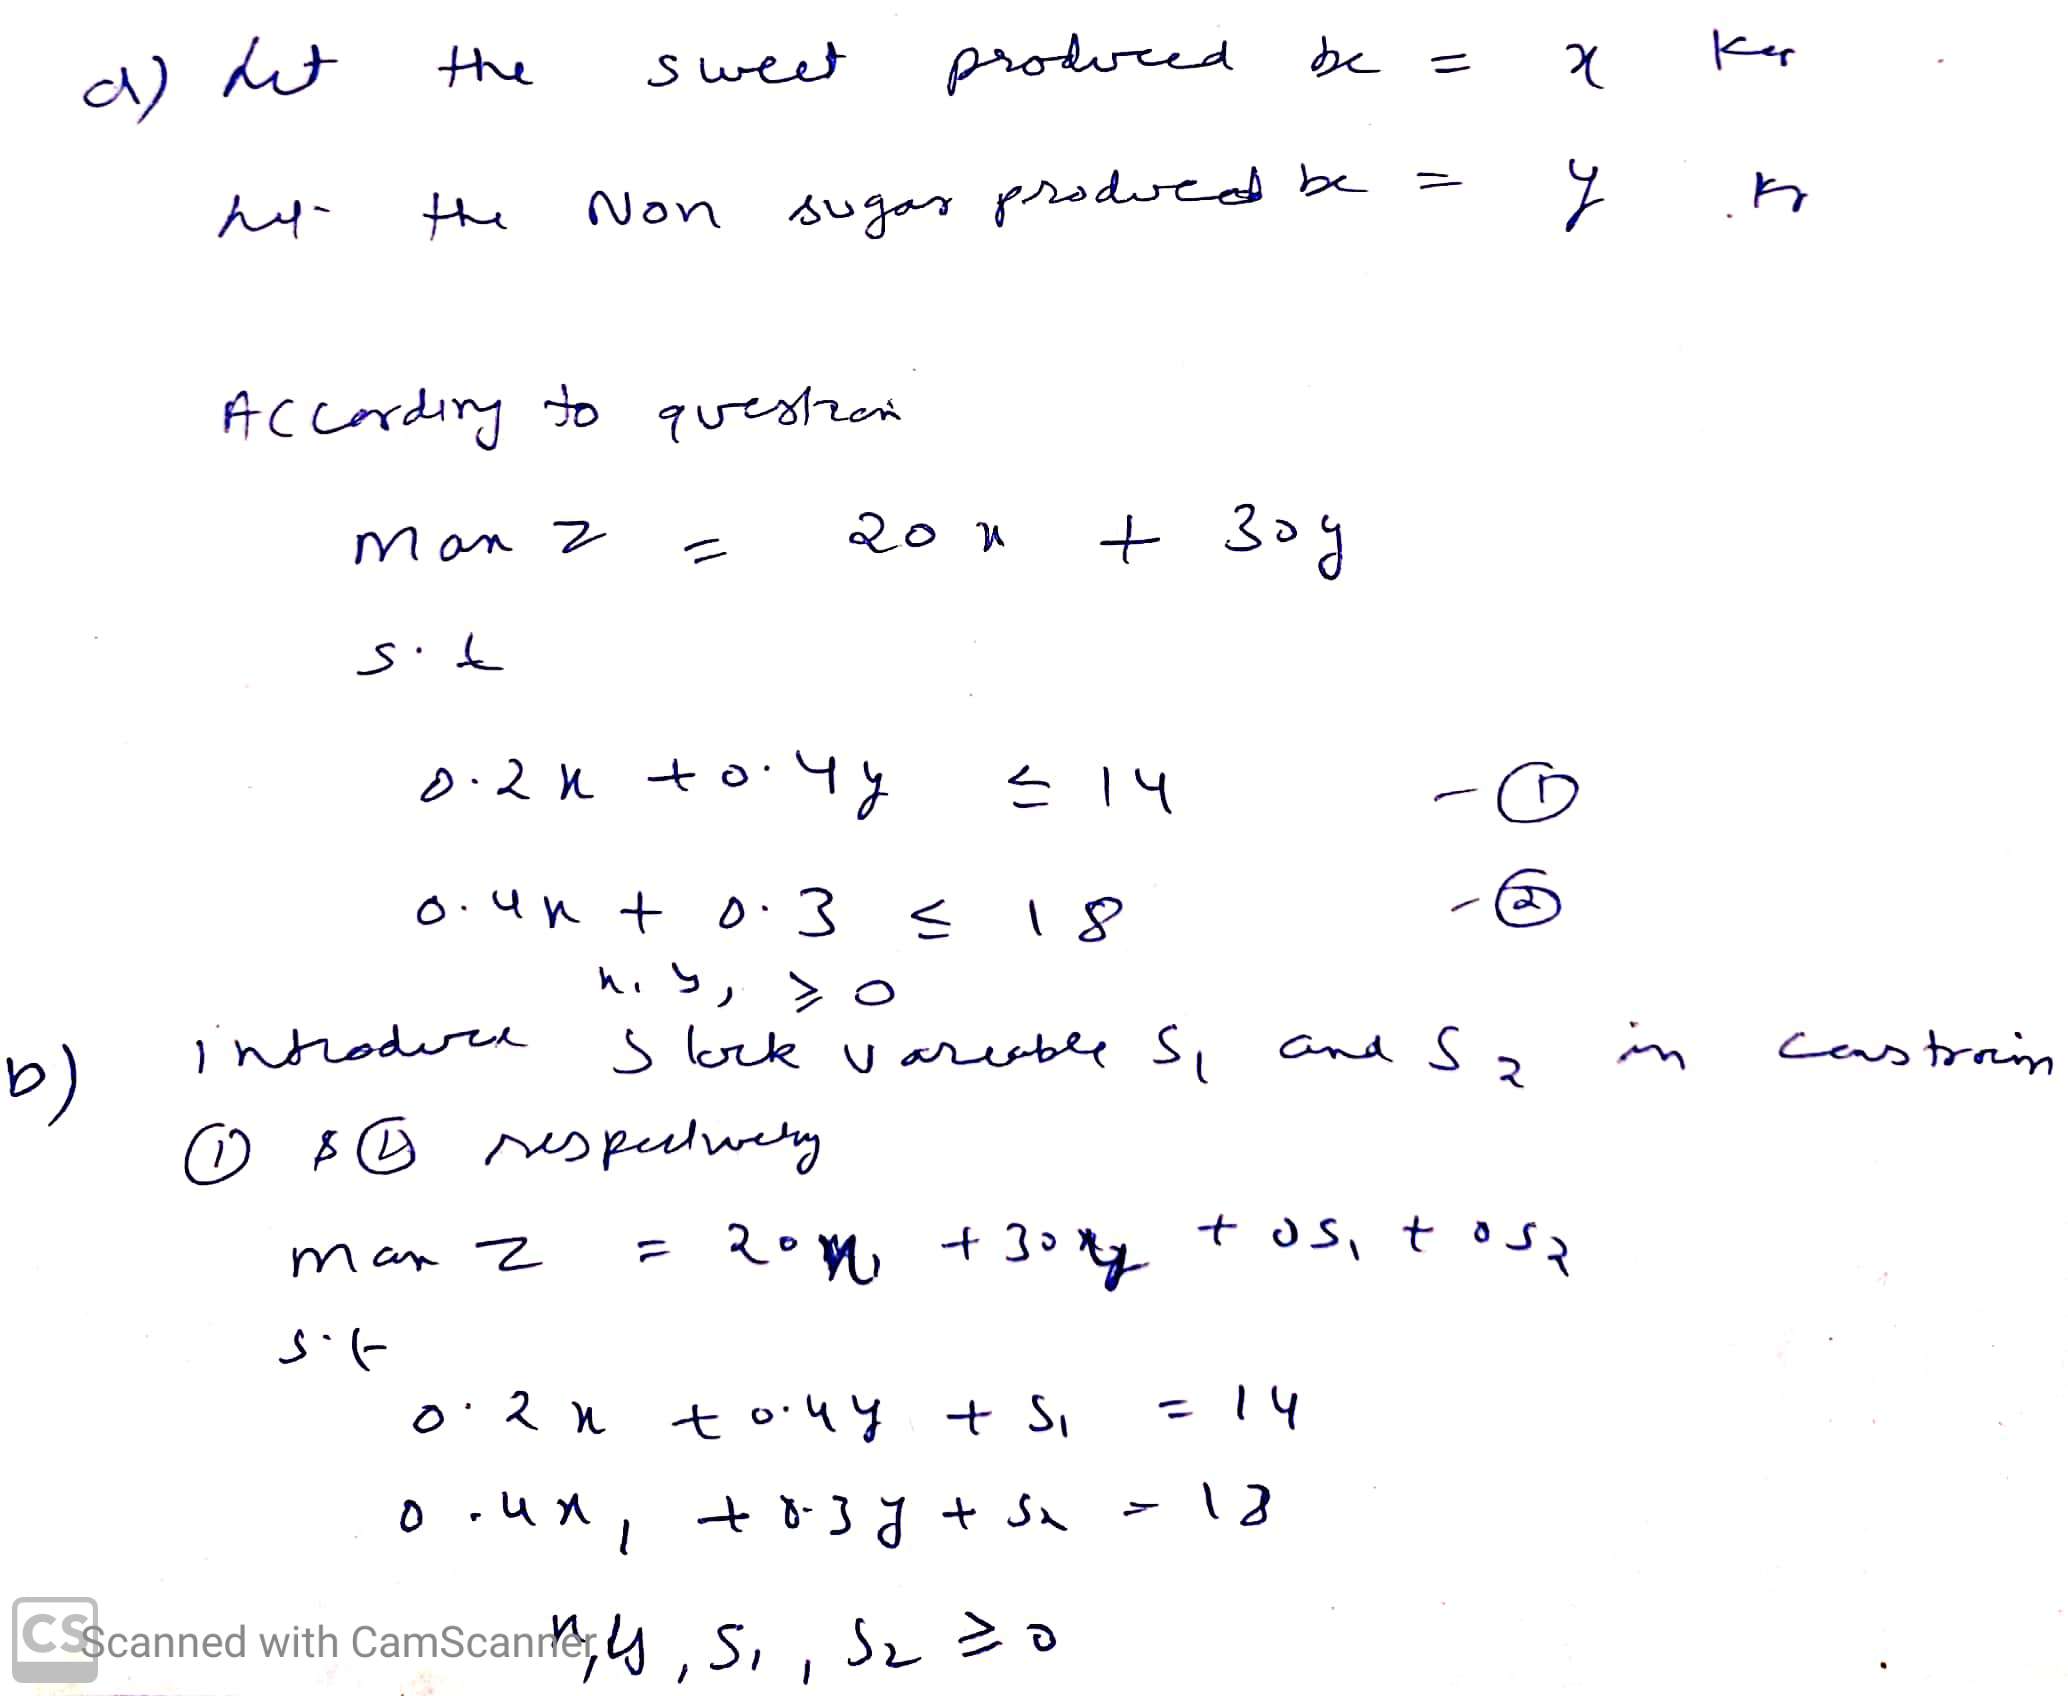 a) Let the sweet produced be = x Kg
Let the Non sugar produced be = y K
According to question
Max Z = 20x + 30y
s.t
0.2x + 0.4y ≤ 14 - ①
0.4x + 0.3 ≤ 18 - ②
x, y, ≥ 0
b) introduce slack variable S₁ and S₂ in constrain
① & ② respectively
Max Z = 20x₁ + 30y + 0S₁ + 0S₂
s.t
0.2x + 0.4y + S₁ = 14
0.4x₁ + 0.3y + S₂ = 18
x, y, S₁, S₂ ≥ 0
CS Scanned with CamScanner